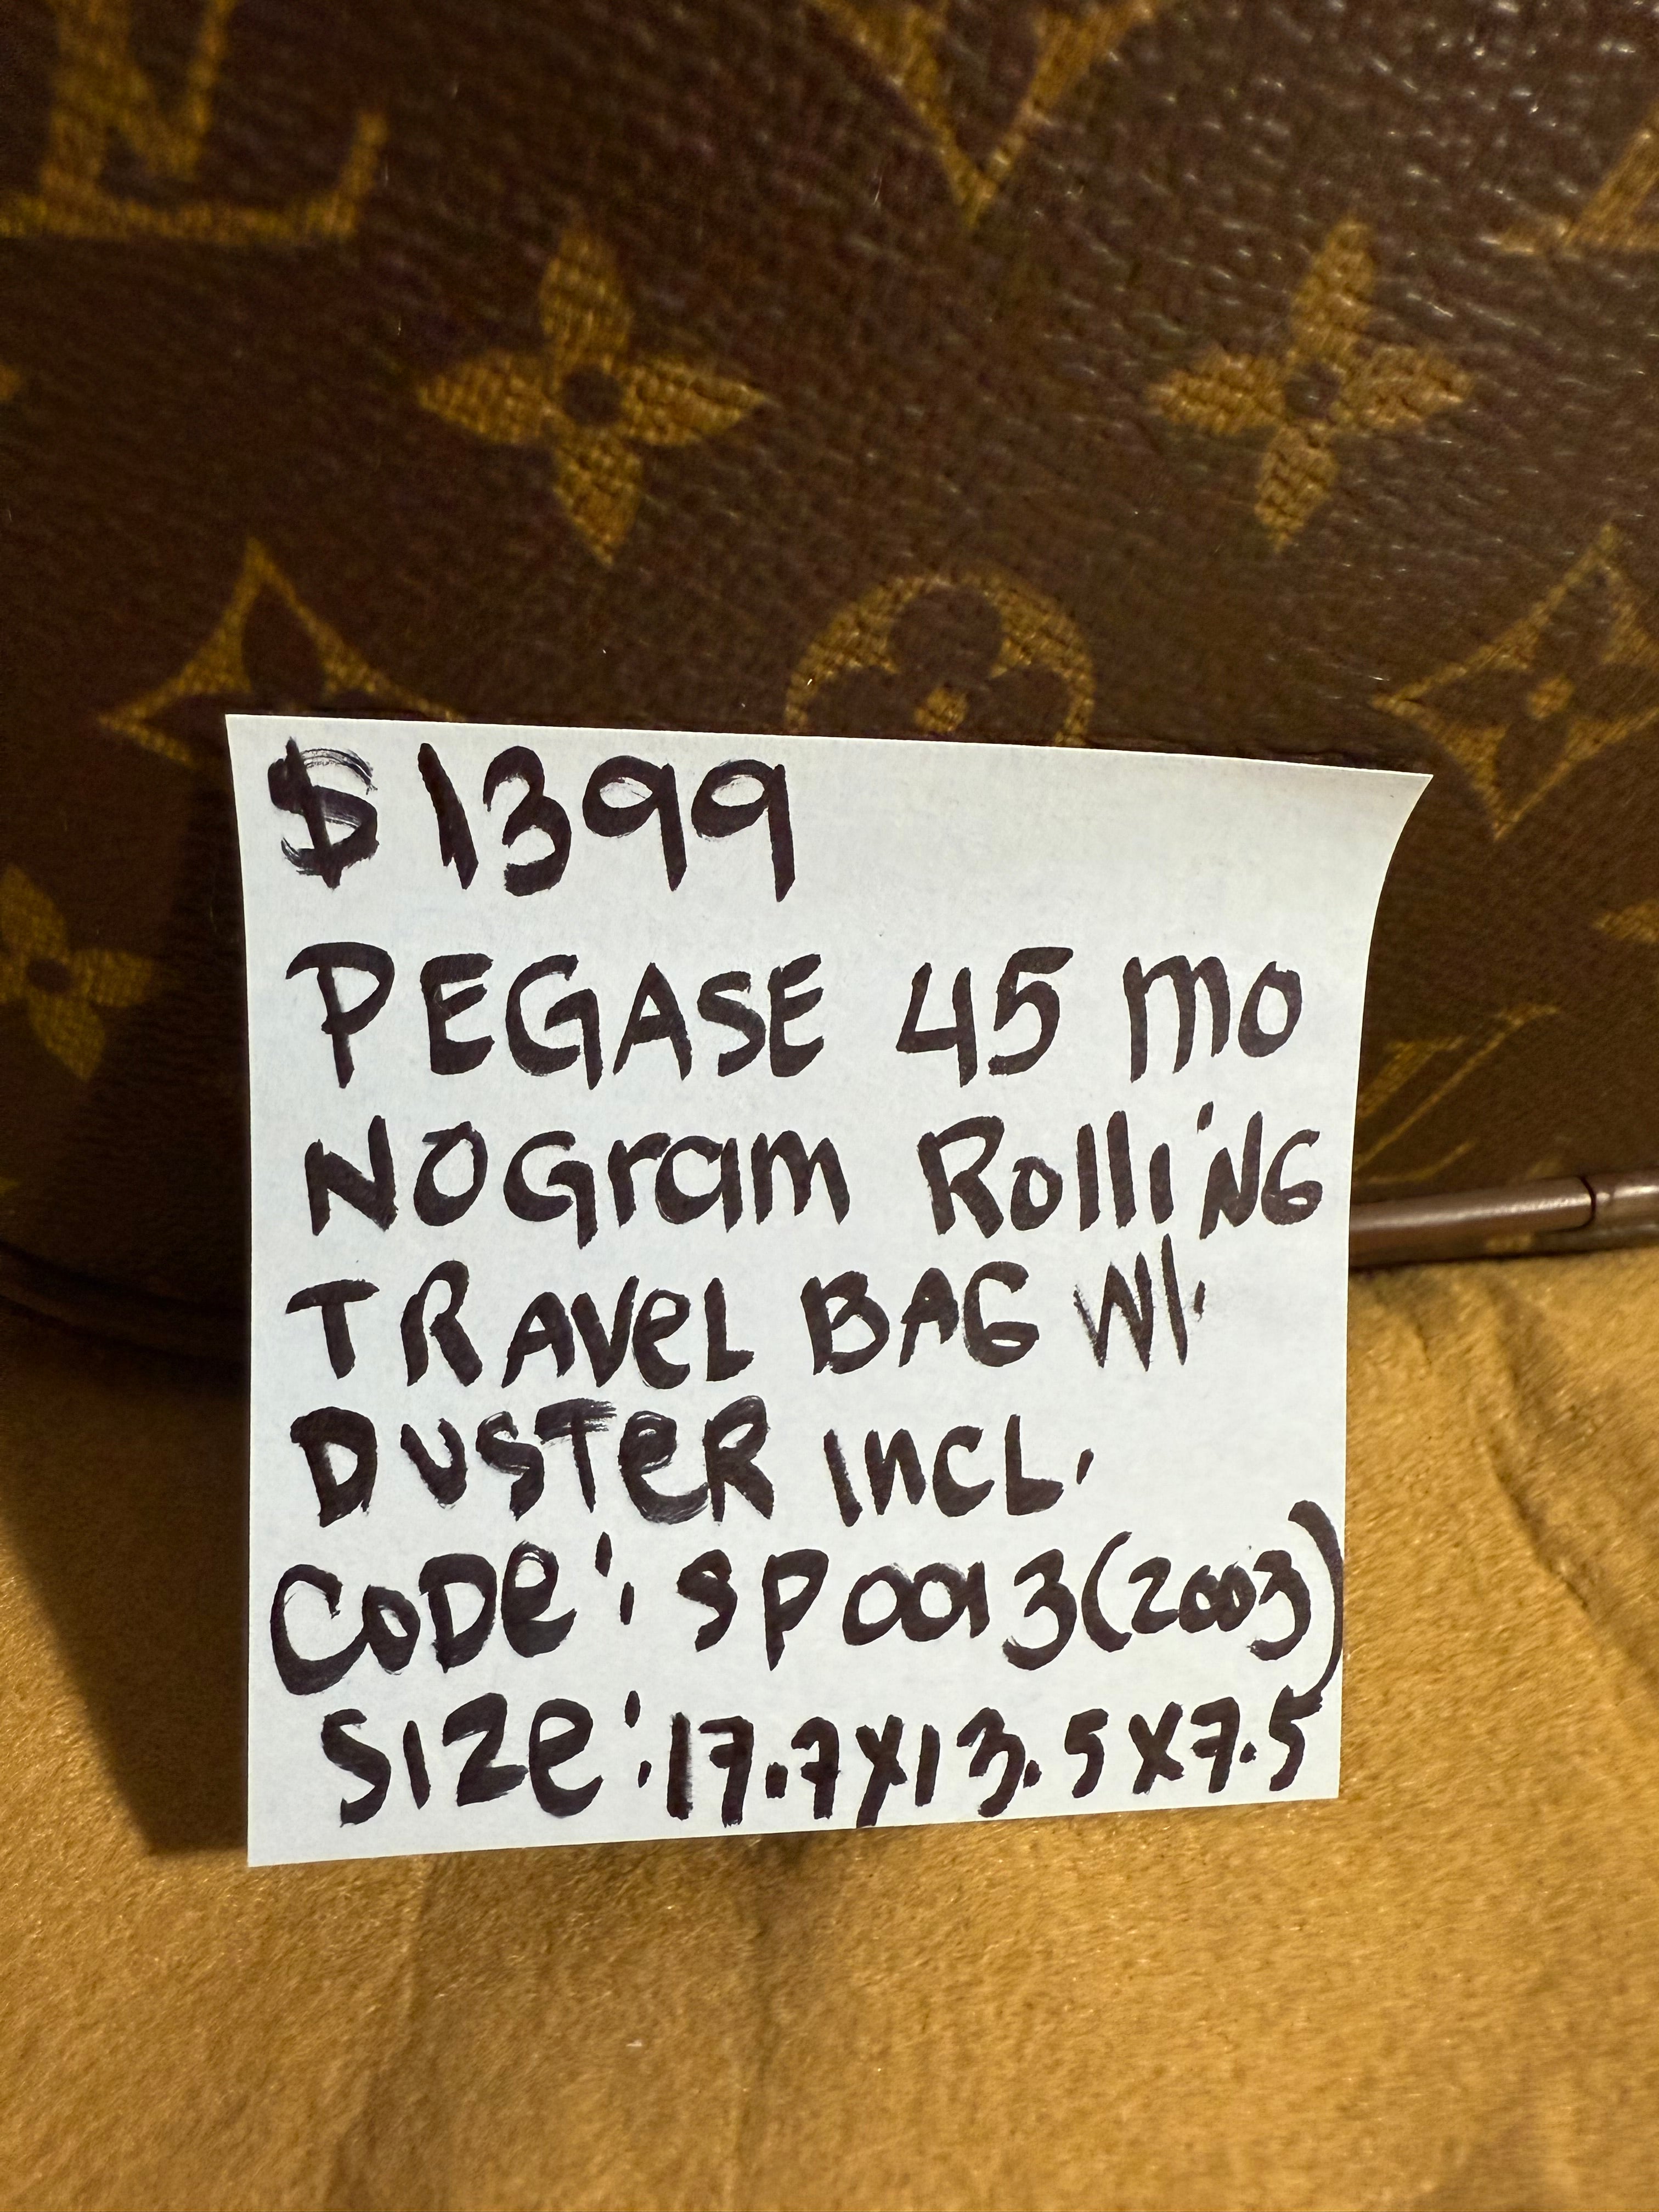 $1399
PEGASE 45 mo
NOGram RolliNG
TRAVeL BAG W/.
DUSTeR INCL.
CODe: SP0013(2003)
SIZe: 17.7X13.5X7.5